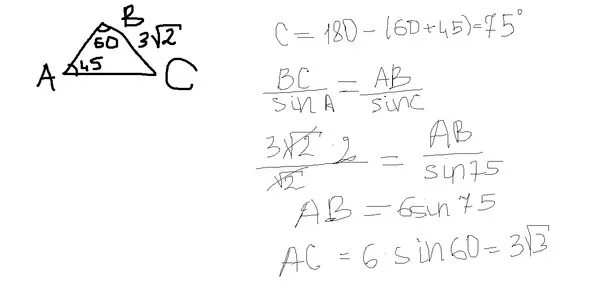 B
60
3√2
A
45
C
C = 180 - (60 + 45) = 75°
BC/sin A = AB/sin C
3√2 · 2/√2 = AB/sin 75
AB = 6 sin 75
AC = 6 sin 60 = 3√3